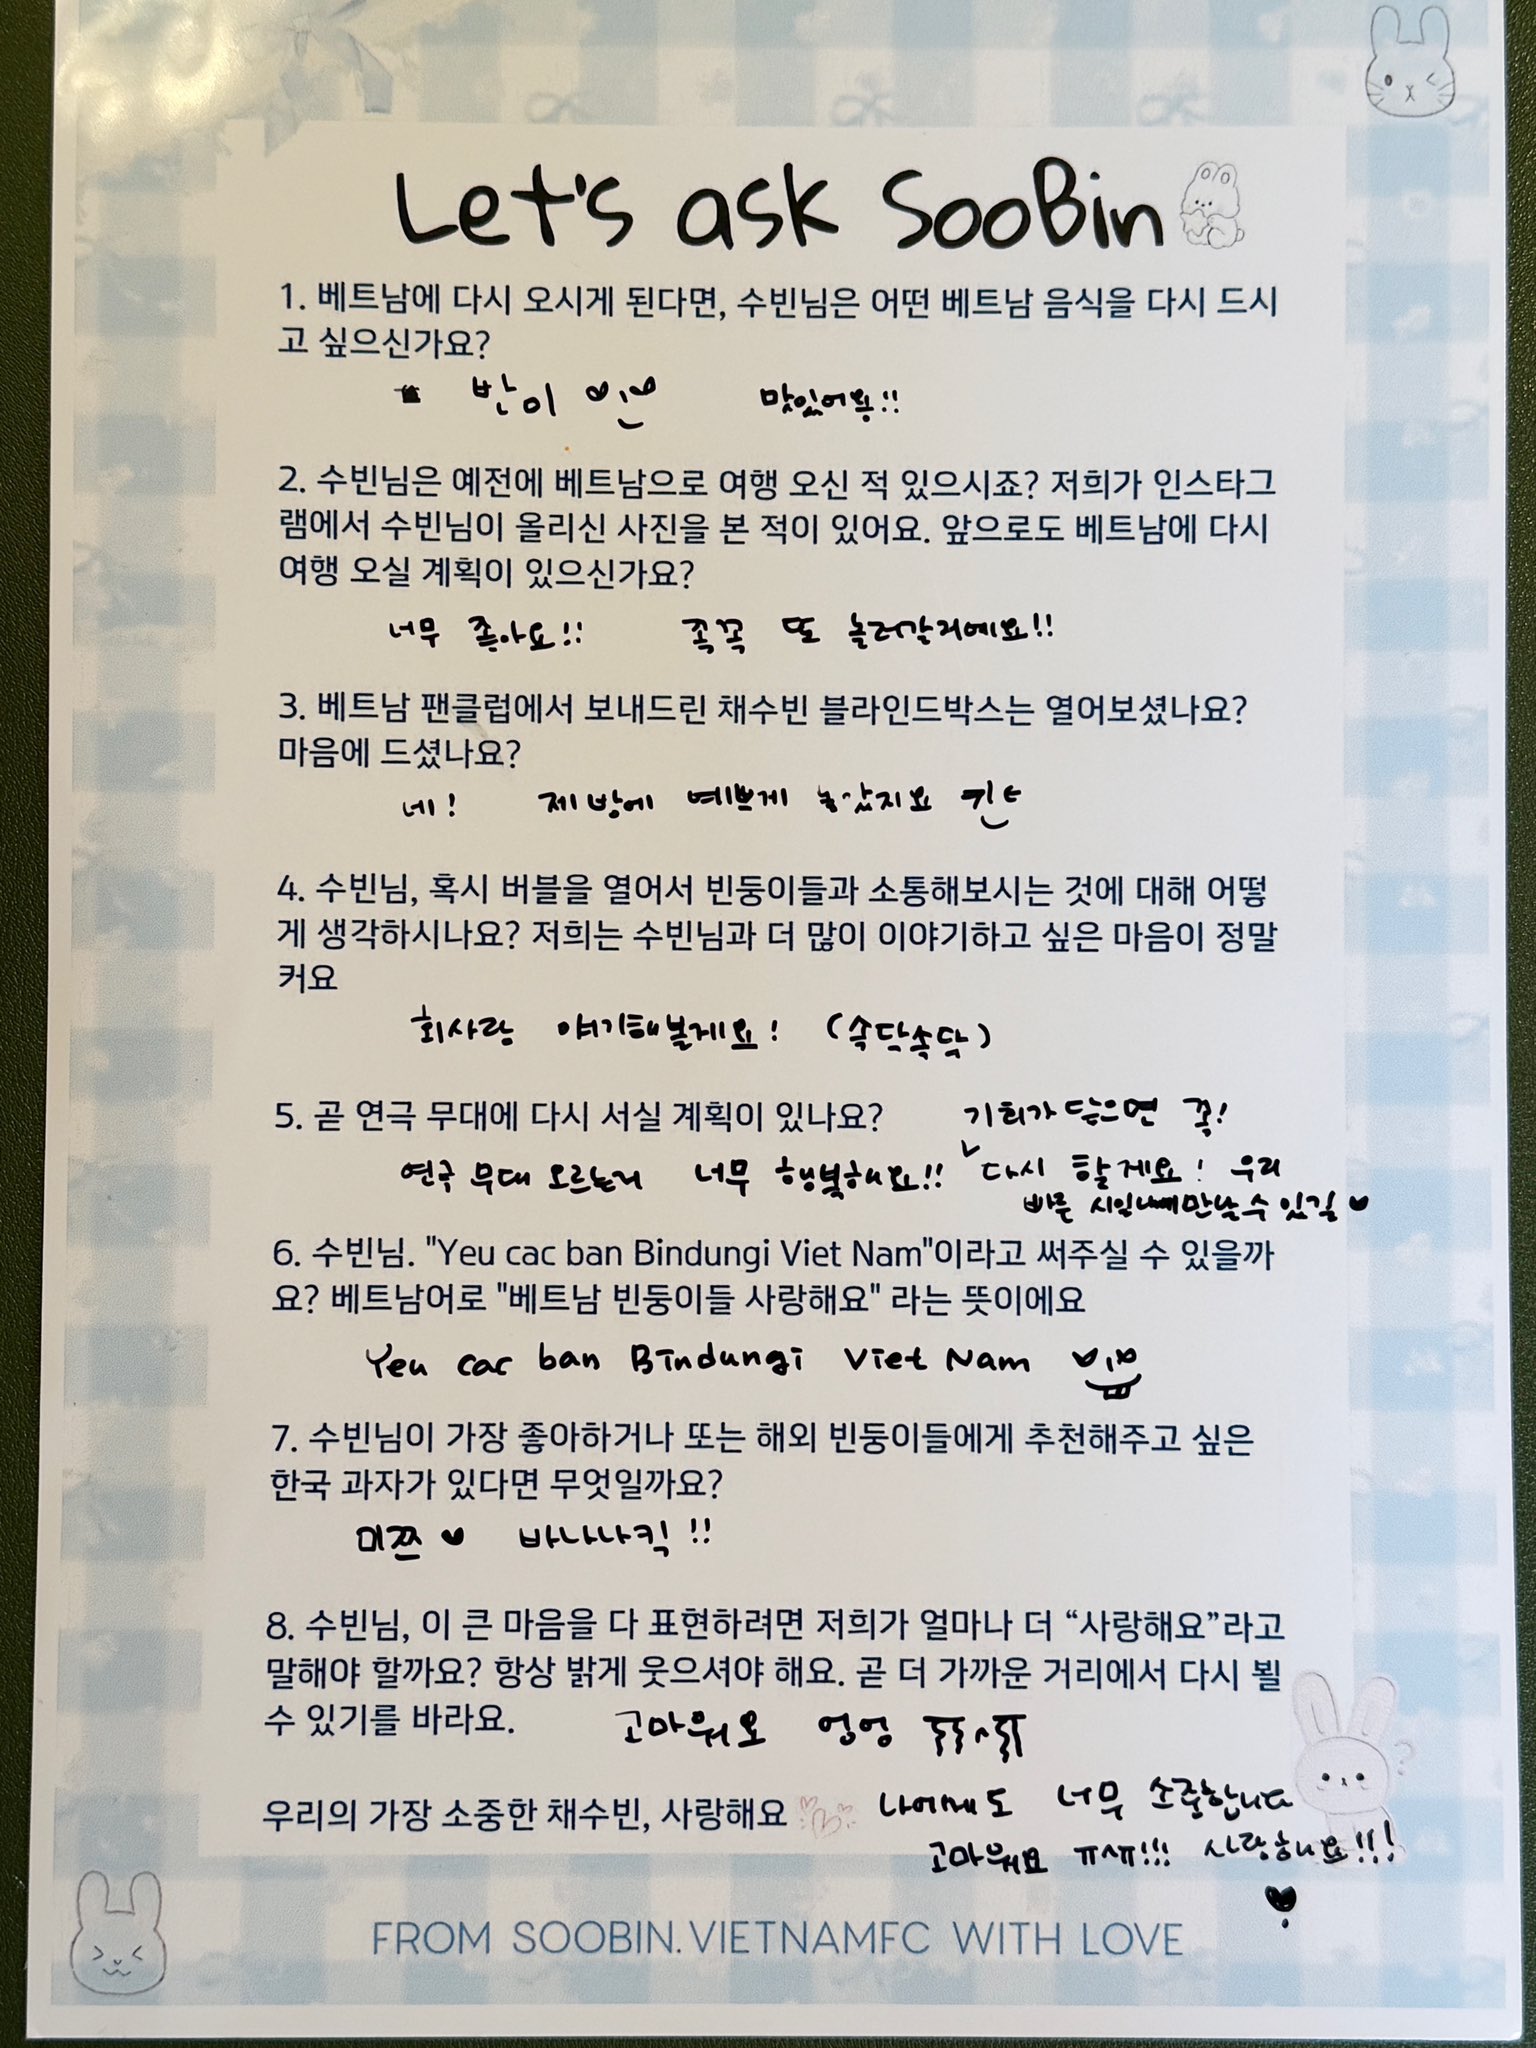 Let's ask SooBin
1. 베트남에 다시 오시게 된다면, 수빈님은 어떤 베트남 음식을 다시 드시
고 싶으신가요?
반미 맛있어용!!
2. 수빈님은 예전에 베트남으로 여행 오신 적 있으시죠? 저희가 인스타그
램에서 수빈님이 올리신 사진을 본 적이 있어요. 앞으로도 베트남에 다시
여행 오실 계획이 있으신가요?
너무 좋아요!! 꼭꼭 또 놀러갈거예요!!
3. 베트남 팬클럽에서 보내드린 채수빈 블라인드박스는 열어보셨나요?
마음에 드셨나요?
네! 제 방에 예쁘게 놔놨지요
4. 수빈님, 혹시 버블을 열어서 빈둥이들과 소통해보시는 것에 대해 어떻
게 생각하시나요? 저희는 수빈님과 더 많이 이야기하고 싶은 마음이 정말
커요
회사랑 얘기해볼게요! (속닥속닥)
5. 곧 연극 무대에 다시 서실 계획이 있나요? 기회가 닿으면 꼭!
연극 무대 오르는거 너무 행복해요!! 다시 할게요! 우리
빠른 시일내에 만날 수 있길 ♥
6. 수빈님. "Yeu cac ban Bindungi Viet Nam"이라고 써주실 수 있을까
요? 베트남어로 "베트남 빈둥이들 사랑해요" 라는 뜻이에요
Yeu cac ban Bindungi Viet Nam
7. 수빈님이 가장 좋아하거나 또는 해외 빈둥이들에게 추천해주고 싶은
한국 과자가 있다면 무엇일까요?
미쯔 ♥ 바나나킥!!
8. 수빈님, 이 큰 마음을 다 표현하려면 저희가 얼마나 더 “사랑해요”라고
말해야 할까요? 항상 밝게 웃으셔야 해요. 곧 더 가까운 거리에서 다시 뵐
수 있기를 바라요. 고마워요 엉엉
우리의 가장 소중한 채수빈, 사랑해요 나에게도 너무 소중합니다
고마워요 ㅠㅅㅠ!!! 사랑해요!!! ♥
FROM SOOBIN.VIETNAMFC WITH LOVE